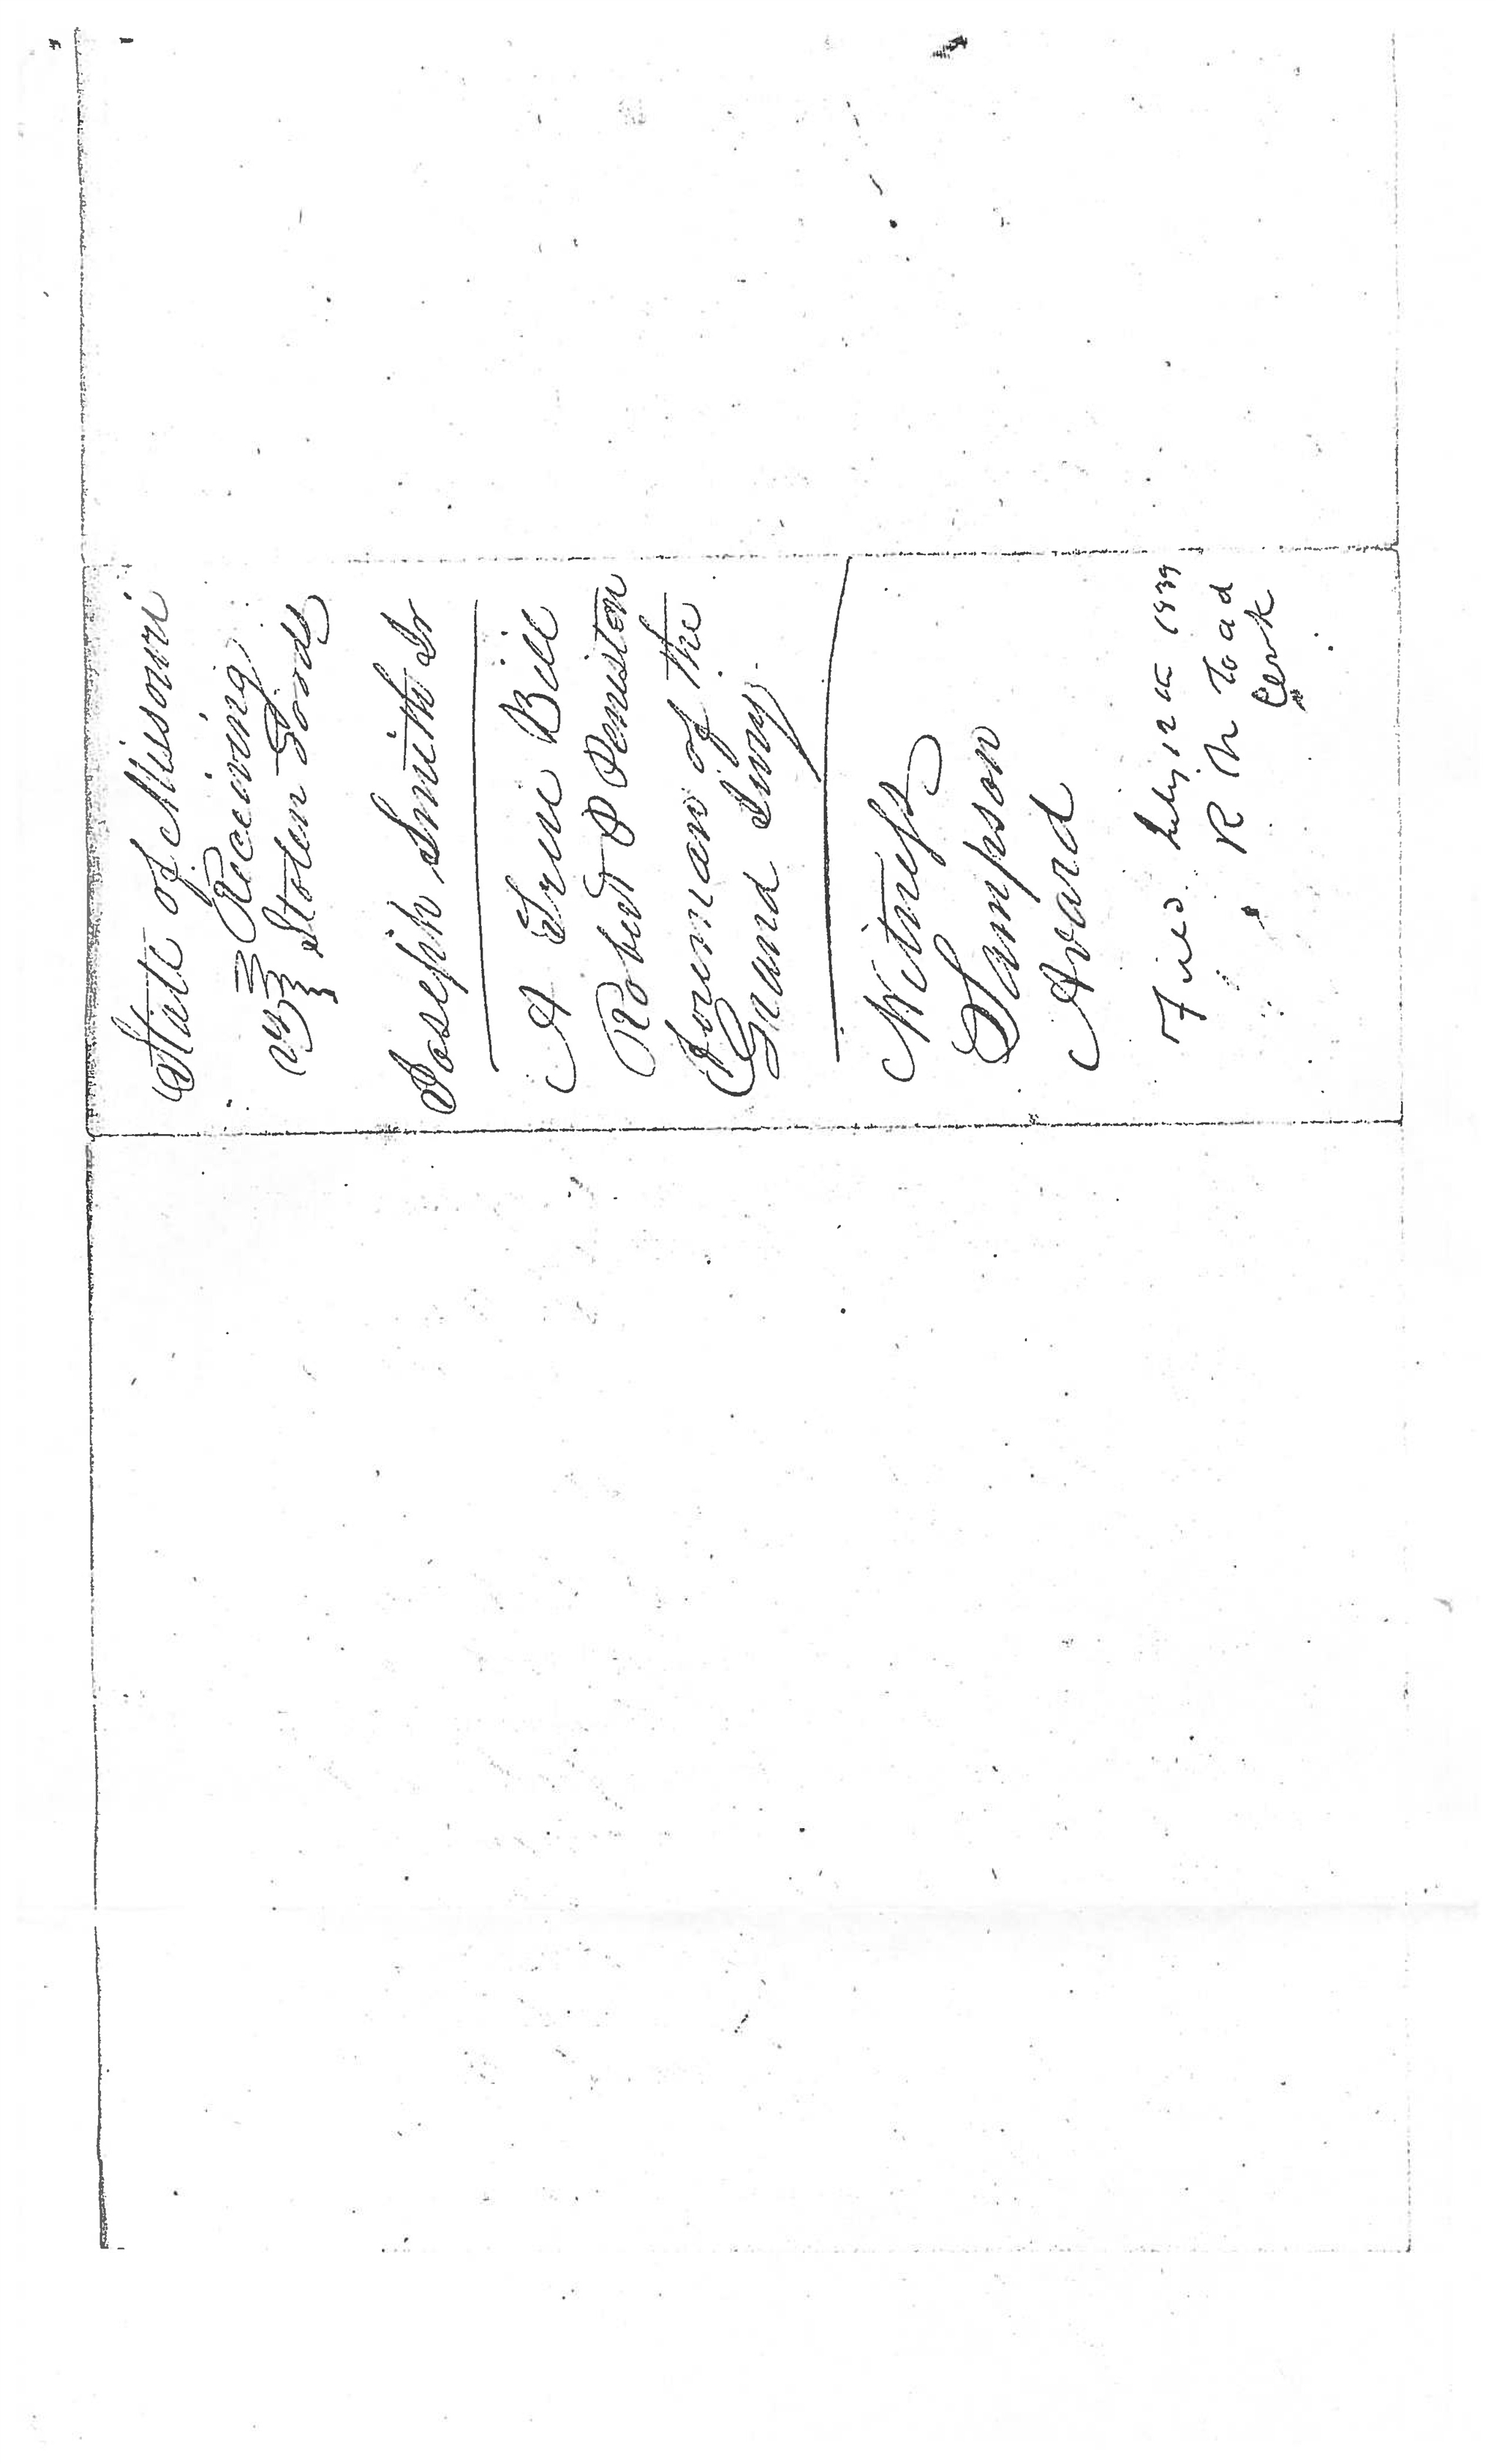 State of Missouri
vs Receiving
Stolen Goods
Joseph Smith Jr
A True Bill
Robert P Peniston
Foreman of the
Grand Jury
Witness
Sampson
Avard
Filed July 12th 1839
R N Todd
Clerk